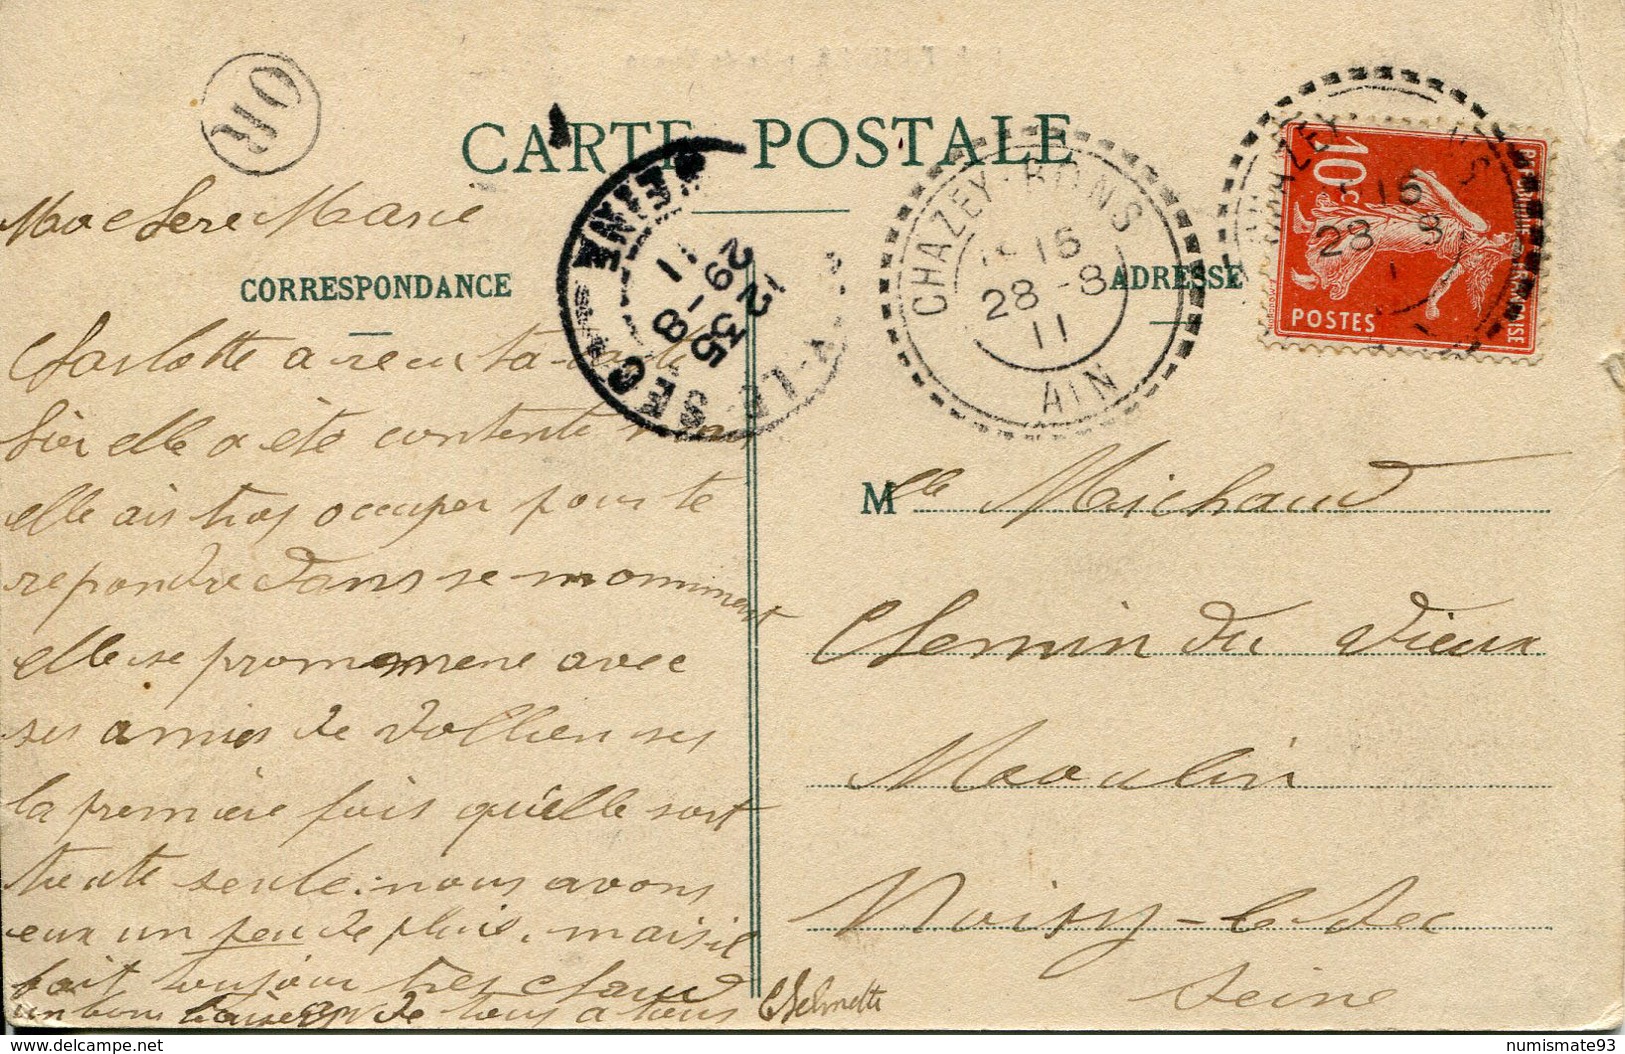 OR
CARTE POSTALE
CORRESPONDANCE
ADRESSE
CHAZEY-BONS
15 16
28-8
11
AIN
NOISY-LE-SEC
SEINE
12 35
29-8
11
10c
POSTES
Ma chere Marie
Charlotte a recu ta carte
hier elle a été contente mais
elle ais trop occuper pour te
repondre dans se momment
elle se promemene avec
ses amies de Vollien ses
la premiere fois qu'elle sort
toute seule. nous avons
eux un peu de pluie. mais il
fait toujour tres chaud
un bons baiser de tous a tous
Chelmette
Mlle Maichaud
Chemin du Vieux
Moulin
Noisy-le-Sec
Seine
www.delcampe.net
numismate93